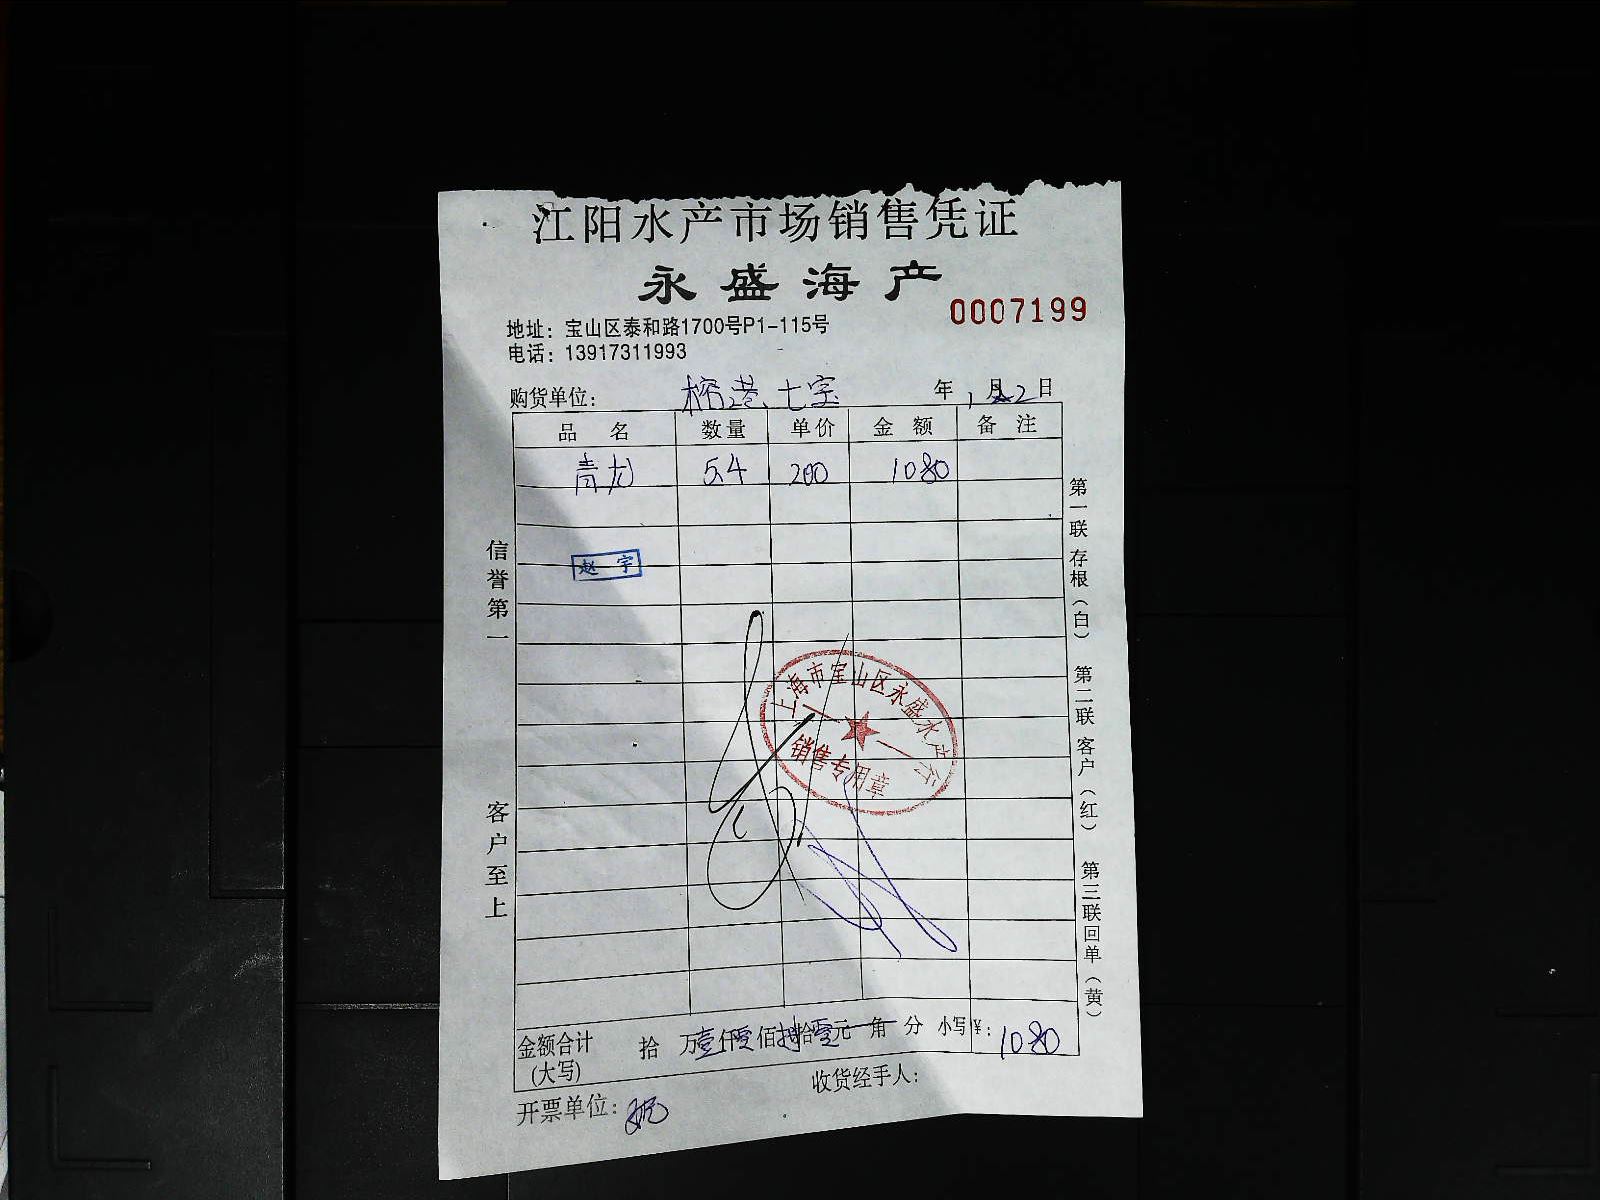 江阳水产市场销售凭证
永盛海产
0007199
地址：宝山区泰和路1700号P1-115号
电话：13917311993
购货单位： 榕港 七宝 年 1 月 2 日
品名 数量 单价 金额 备注
青龙 5.4 200 1080
赵宇
信誉第一
客户至上
上海市宝山区永盛水产行
销售专用章
第一联存根（白） 第二联客户（红） 第三联回单（黄）
金额合计 拾 万壹仟零佰捌拾零元 角 分 小写¥：1080
(大写)
收货经手人：
开票单位：